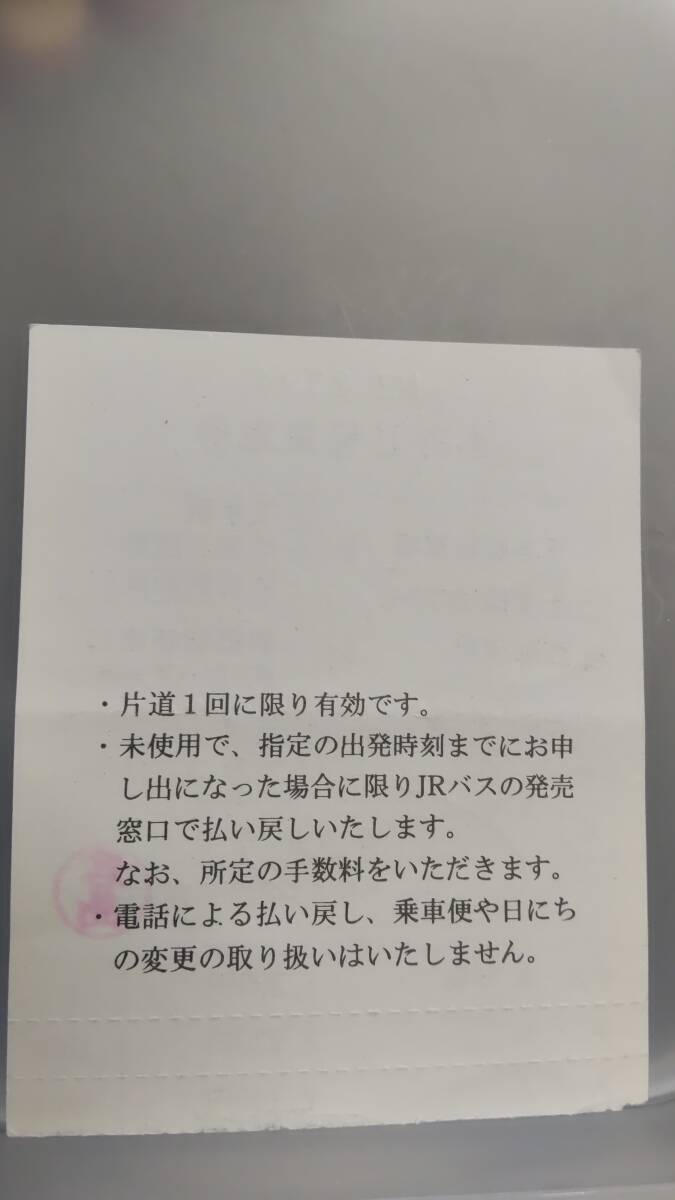 ・片道１回に限り有効です。
・未使用で、指定の出発時刻までにお申
し出になった場合に限りJRバスの発売
窓口で払い戻しいたします。
なお、所定の手数料をいただきます。
・電話による払い戻し、乗車便や日にち
の変更の取り扱いはいたしません。